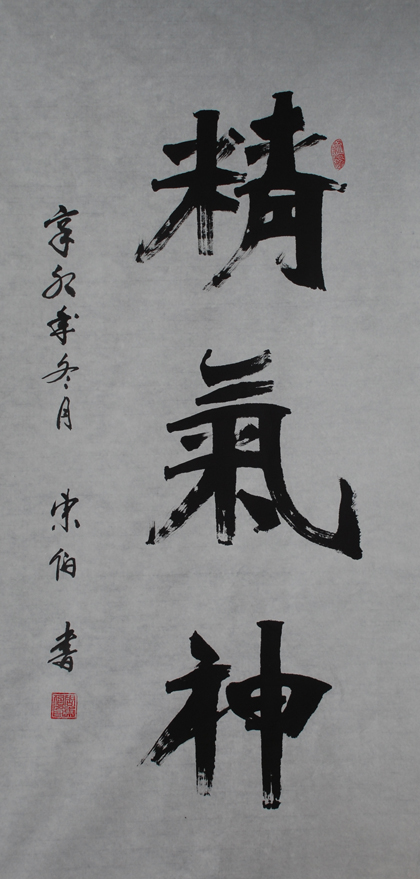 精氣神
辛卯年冬月 伯 書